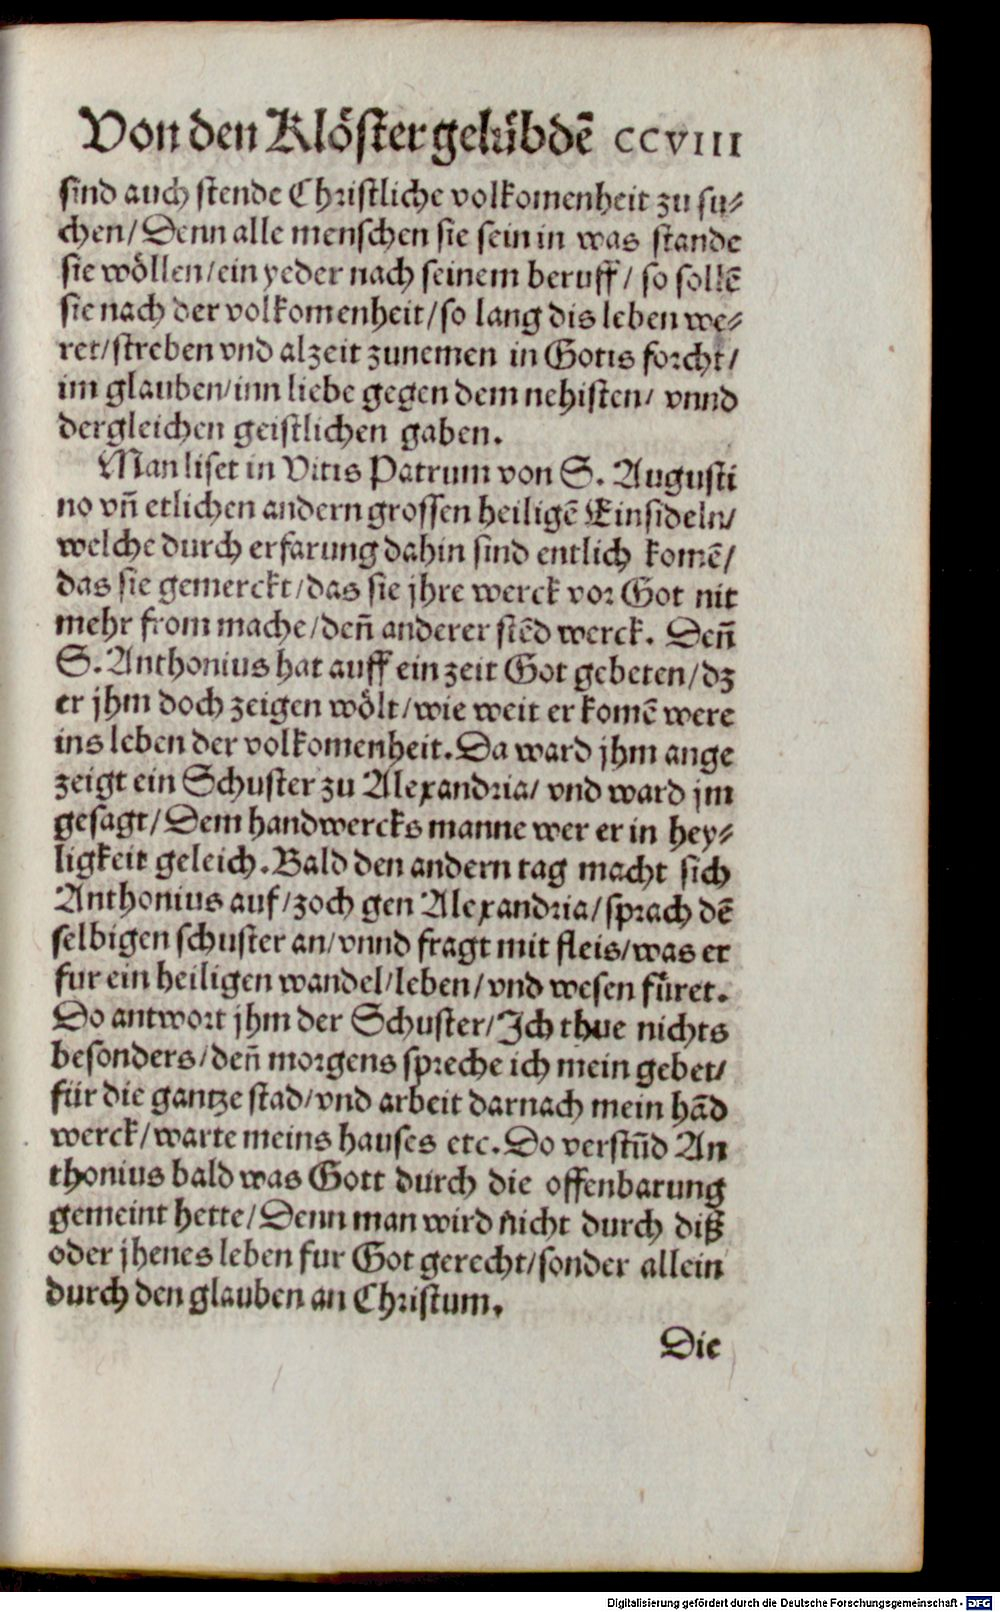 Von den Klöster gelübdē CCVIII
sind auch stende Christliche volkomenheit zu su⸗
chen/Denn alle menschen sie sein in was stande
sie wöllen/ein yeder nach seinem beruff/ so sollē
sie nach der volkomenheit/so lang dis leben we⸗
ret/streben vnd alzeit zunemen in Gotts forcht/
im glauben/inn liebe gegen dem nehisten/ vnnd
dergleichen geistlichen gaben.
Man liset in Vitis Patrum von S. Augusti
no vn̄ etlichen andern grossen heiligē Einsideln/
welche durch erfarung dahin sind entlich komē/
das sie gemerckt/das sie jhre werck vor Got nit
mehr from mache/den̄ anderer stēd werck. Den̄
S. Anthonius hat auff ein zeit Got gebeten/dz
er jhm doch zeigen wölt/wie weit er komē were
ins leben der volkomenheit. Da ward jhm ange
zeigt ein Schuster zu Alexandria/ vnd ward jm
gesagt/Dem handwercks manne wer er in hey⸗
ligkeit geleich. Bald den andern tag macht sich
Anthonius auf/zoch gen Alexandria/sprach dē
selbigen schuster an/vnnd fragt mit fleis/was er
fur ein heiligen wandel/leben/vnd wesen füret.
Do antwort jhm der Schuster/Ich thue nichts
besonders/den̄ morgens spreche ich mein gebet/
für die gantze stad/vnd arbeit darnach mein hād
werck/warte meins hauses etc. Do verstūd An
thonius bald was Gott durch die offenbarung
gemeint hette/Denn man wird nicht durch diß
oder jhenes leben fur Got gerecht/sonder allein
durch den glauben an Christum.
Die
Digitalisierung gefördert durch die Deutsche Forschungsgemeinschaft - DFG